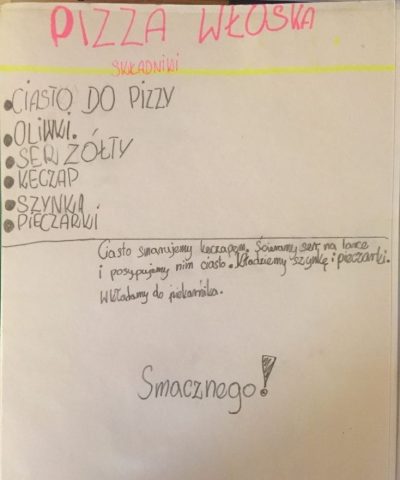 PIZZA WŁOSKA
SKŁADNIKI
CIASTO DO PIZZY
OLIWKI.
SER ŻÓŁTY
KECZAP
SZYNKA
PIECZARKI
Ciasto smarujemy keczapem. Ścieramy ser na tarce
i posypujemy nim ciasto. Kładziemy szynkę i pieczarki.
Wkładamy do piekarnika.
Smacznego!